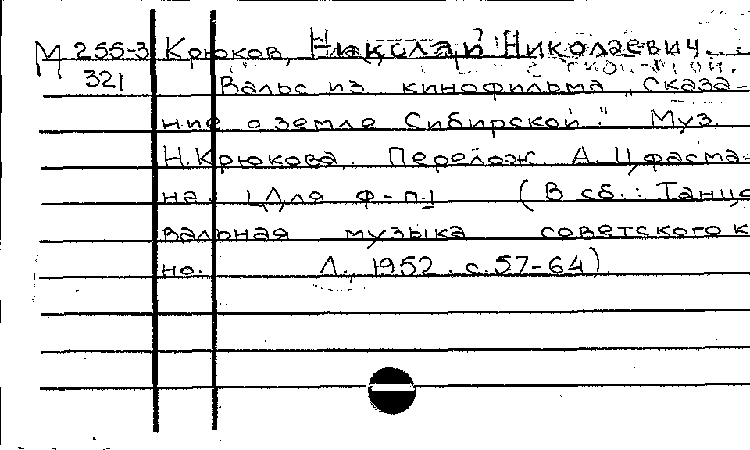 М 255-3 Крюков, Николай Николаевич.
321 Вальс из кинофильма „Сказа-
ние о земле Сибирской." Муз.
Н. Крюкова. Перелож. А. Цфасма-
на. [Для ф-п.] (В сб.: Танце
вальная музыка советского к
но. Л., 1952. с. 57-64)